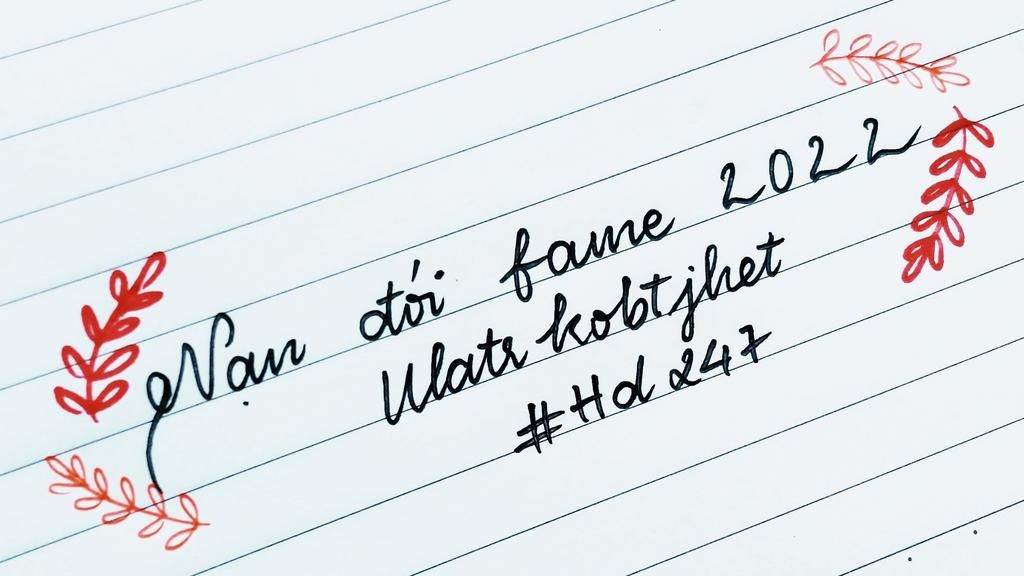 Nạn đói fame 2022
Ulatr kobtjhet
#Hd 247